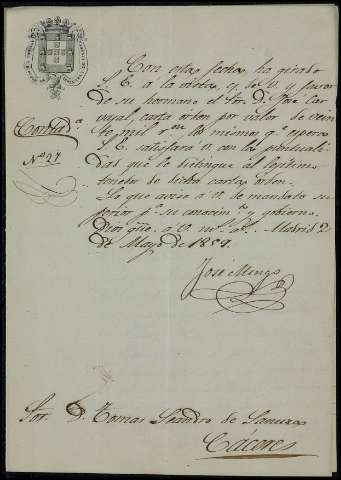 Con esta fecha, ha girado
S. E. á la vista, y de V. y favor
de su hermano el Sor. D. José Car-
vajal, carta orden por valor de vein
te mil rs. los mismos q.e espera
S. E. satisfará V. con la puntuali-
dad que le distingue al legítimo
tenedor de dicha carta orden.
Lo que aviso á V. de mandato su-
perior p.a su conocim.to y gobierno.
Dios gue. á V. m.s a.s Madrid 2
de Mayo de 1859.
Contad.a
N.o 27
José Mingo
Sor. D. Tomas Leandro de
Cáceres